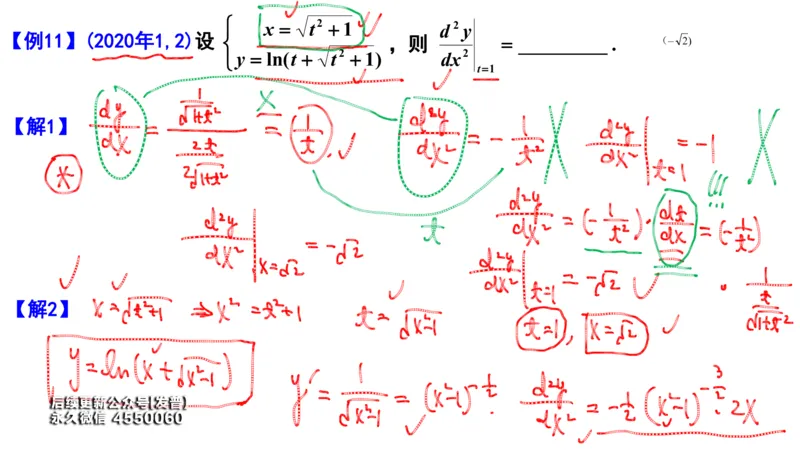 【例11】(2020年1,2)设 { x = √(t²+1) , y = ln(t + √(t²+1)) , 则 d²y/dx² |t=1 = ________ . (−√2)
【解1】 dy/dx = (1/√(1+t²)) / (2t/(2√(1+t²))) = 1/t , d²y/dx² = −1/t² d²y/dx² |t=1 = −1
t
d²y/dx² = (−1/t²) · dt/dx = (−1/t²) · 1/(t/√(1+t²))
d²y/dx² |x=√2 = −√2
d²y/dx² |t=1 = −√2
【解2】 x = √(t²+1) ⇒ x² = t²+1 t = √(x²−1) t=1 , x=√2
y = ln(x + √(x²−1))
y′ = 1/√(x²−1) = (x²−1)^(−1/2) . d²y/dx² = −1/2 (x²−1)^(−3/2) · 2x
后续更新公众号[发普]
永久微信 4550060